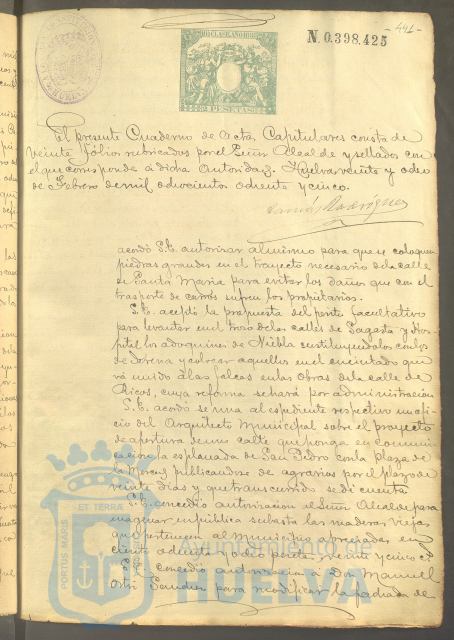 -441-
N. 0.398.425
El presente Cuaderno de Actas Capitulares consta de
veinte folios rubricados por el Señor Alcalde y sellados con
el que corresponde a dicha Autoridad. Huelva veinte y ocho
de Febrero de mil ochocientos ochenta y cinco.
Rodriguez
acordó S.E. autorizar al mismo para que se coloquen
piedras grandes en el trayecto necesario de la calle
de Santa Maria para evitar los daños que con el
trasporte de carros sufren los propietarios.
S.E. aceptó la propuesta del perito facultativo
para levantar en el trozo de las calles de Sagasta y Hos-
pital los adoquines de Niebla sustituyendolos con los
de Gerena y colocar aquellos en el encintado que
vá unido á las en las obras de la calle de
Ricos, cuya reforma se hará por administracion.
S.E. acordó se una al espediente respectivo un ofi-
cio del Arquitecto Municipal sobre el proyecto
de apertura de una calle que ponga en comuni-
cacion la esplanada de San Pedro con la plaza de
la Merced publicandose de agravios por el plazo de
veinte dias y que transcurrido se dé cuenta.
S.E. concedió autorizacion al Señor Alcalde para
enagenar en publica subasta las maderas viejas
que pertenecen al Municipio apreciadas en
ciento ochenta y ocho pesetas y cinco
S.E. concedió autorizacion á Don Manuel
Sanchez para modificar la fachada de
ET TERRA
PORTUS MARIS
Ayuntamiento de
HUELVA